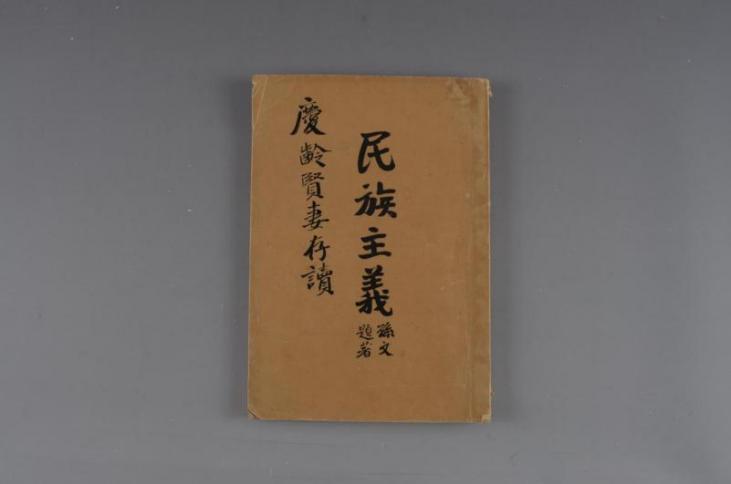 民族主義
孫文
題著
慶齡賢妻存讀